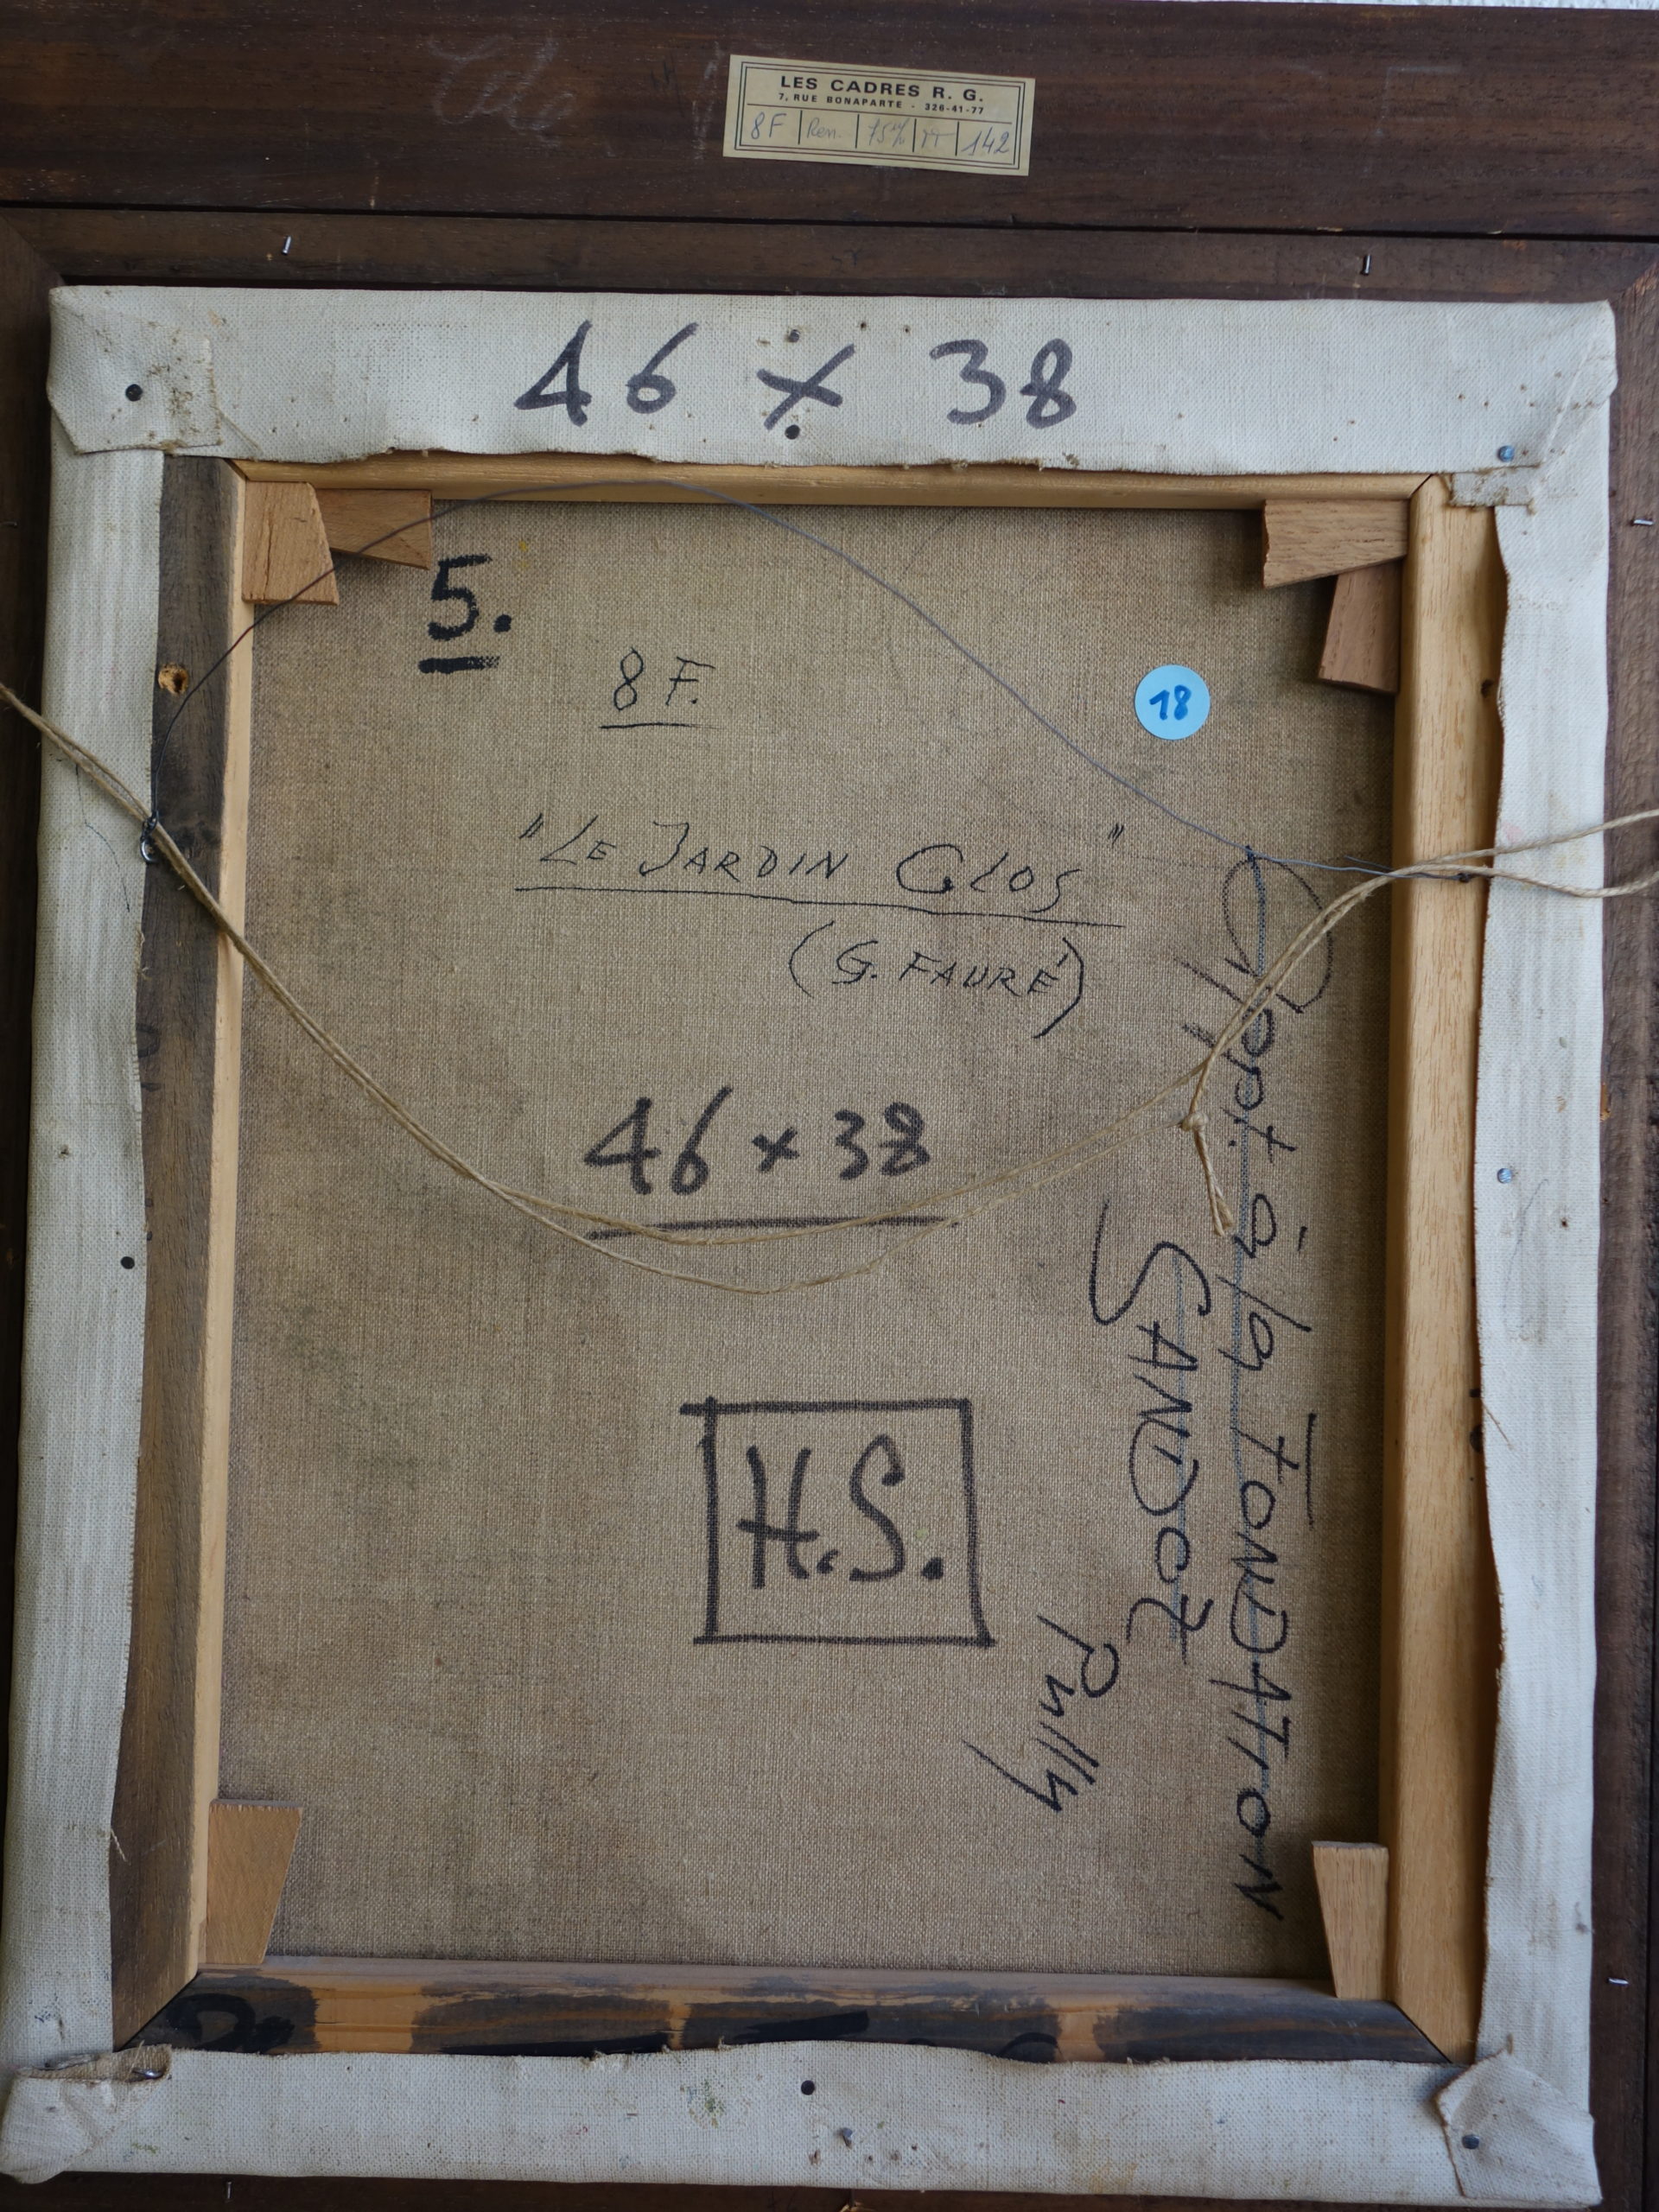 LES CADRES R. G.
7, RUE BONAPARTE - 326-41-77
8F Ren. 75% TT 142
46 x 38
5.
8 F.
18
"LE JARDIN CLOS"
(G. FAURÉ)
46 x 38
H.S.
Appt. à la FONDATION
SANDOZ
Pully